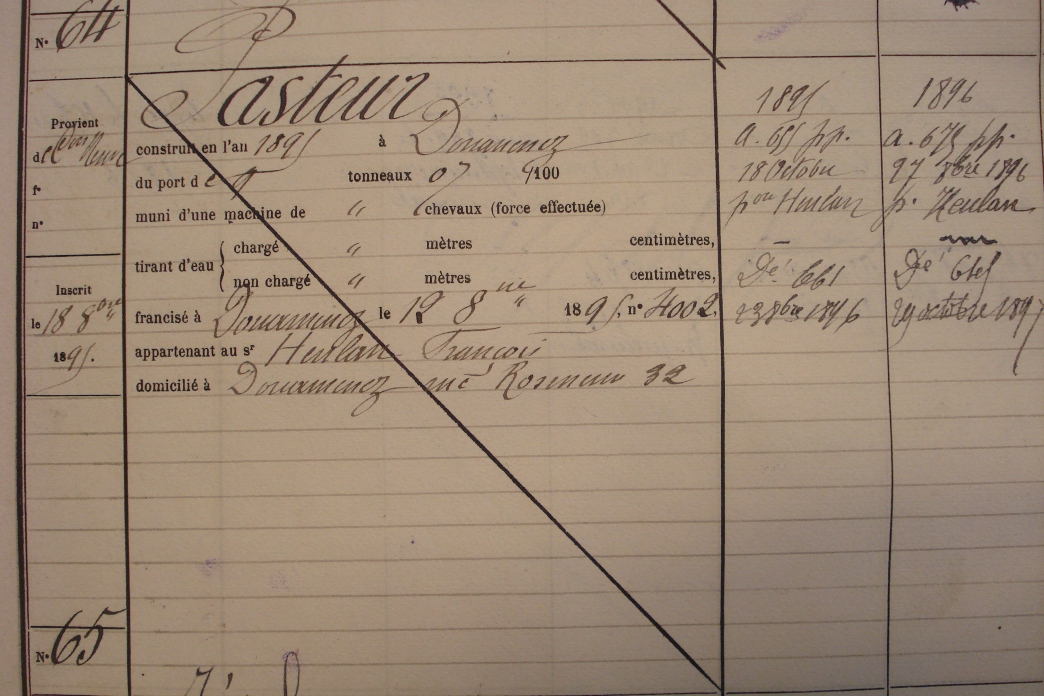 N° 64
Pasteur
Provient
d
f°
n°
construit en l'an 1895 à Douarnenez
du port de tonneaux 07 /100
muni d'une machine de " chevaux (force effectuée)
tirant d'eau { chargé " mètres centimètres,
non chargé " mètres " centimètres,
Inscrit
le 18 8bre
1895.
francisé à Douarnenez le 12 8bre 1895, n° 4002,
appartenant au sr Henlan François
domicilié à Douarnenez rue 32
1895
a. 655 pp.
18 Octobre
pour Henlan
Dé 661
23 8bre 1896
1896
a. 675 pp.
p. Henlan
Dé
29 octobre 1897
N° 65